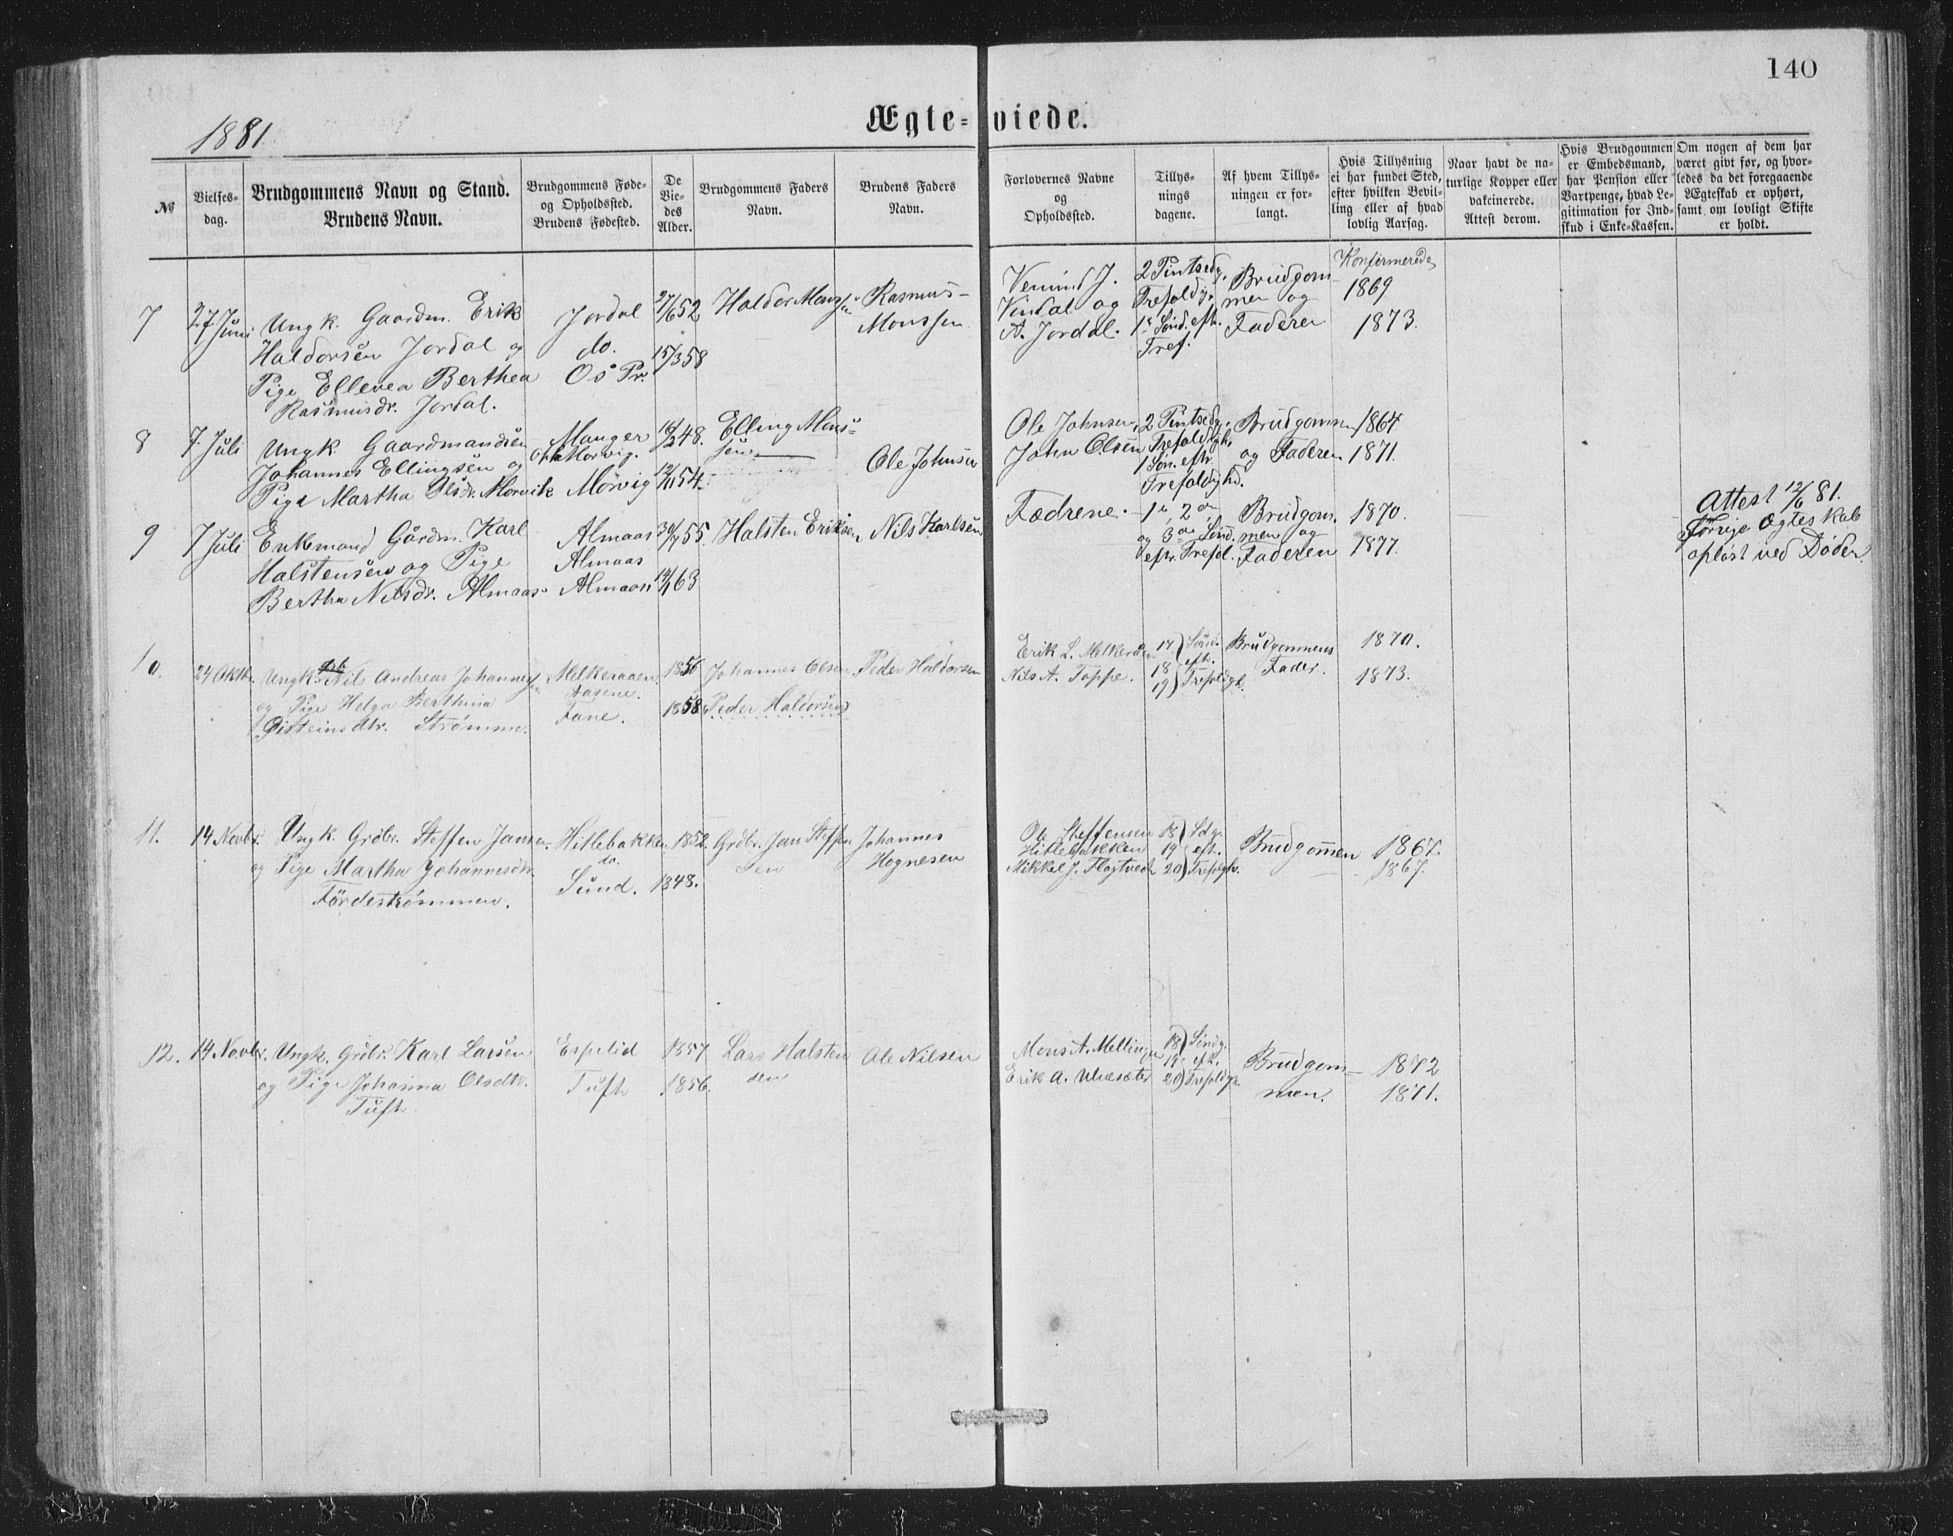 140
1881
Ægte-viede.
№
Vielses-
dag.
Brudgommens Navn og Stand.
Brudens Navn.
Brudgommens Føde-
og Opholdssted.
Brudens Fødested.
De
Vie-
des
Alder.
Brudgommens Faders
Navn.
Brudens Faders
Navn.
Forlovernes Navne
og
Opholdssted.
Tillys-
nings
dagene.
Af hvem Tillys-
ningen er for-
langt.
Hvis Tillysning
ei har fundet Sted,
efter hvilken Bevil-
ling eller af hvad
lovlig Aarsag.
Naar havt de na-
turlige Kopper eller
vakcinerede.
Attest derom.
Hvis Brudgommen
er Embedsmand,
har Pension eller
Vartpenge, hvad Le-
gitimation for Ind-
skud i Enke-Kassen.
Om nogen af dem har
været givt før, og hvor-
ledes da det foregaaende
Ægteskab er ophørt,
samt om lovligt Skifte
er holdt.
7
27 Juni
Ungk. Gaardm. Erik
Haldorsen Jordal og
Pige Ellevea Berthea
Rasmusdr. Jordal.
Jordal
do.
Os Pr.
27/6 52
15/3 58
Haldor Monssen
Rasmus
Monssen
Vemund J.
Vindal og
A. Jordal.
2 Pintsedg.
Trefoldigh.
1e Sönd. eft.
Tref.
Brudgom
men og
Faderen
Konfirmerede
1869
1873.
8
7 Juli
Ungk Gaardmandsön
Johannes Ellingsen og
Pige Martha Olsdr. Morvik
Manger
Morvig.
Mörvig
16/2 48.
12/11 54.
Elling Mons-
sen
Ole Johnsen
Ole Johnsen,
John Olsen
2 Pintsedg.
Trefoldigh.
1 Sön. eftr.
Trefoldighd.
Brudgommen
og Faderen
1864
1871.
9
7 Juli
Enkemand Gårdm. Karl
Halstensen og Pige
Bertha Nilsdr. Almaas
Almaas
Almaas
Almaas
55.
63
Halsten Eriksen
Nils Karlsen
Fædrene.
1e, 2en
og 3die Sönd.
eftr. Trefol.
Brudgom.
men og
Faderen
1870.
1877.
Attest 12/6 81.
Forrige Ægteskab
opløst ved Døden
10.
24 Oktb.
Ungk. Nils Andreas Johannessen
og Pige Helga Berthina
Øisteinsdtr. Strömme.
Melkeraaen
Aasene.
Fane.
1856
1858
Johannes Olsen
Peder Haldorsen
Peder Haldorsen
Erik L. Melkeraaen
Nils A. Toppe.
17 Sönd.
18 eft.
19 Trefoldgh.
Brudgommens
Fader.
1870.
1873.
11.
14 Novbr.
Ungk Grdbr. Steffen Jansen
og Pige Martha Johannesdr.
Fördeströmmen.
Hitlebakken
do.
Sund.
1852.
1848.
Grdbr. Jan Steffen
sen
Johannes
Hognesen
Ole Steffensen
Hitlebakken
Mikkel J. Flagtvedt
18 Sdg.
19 eft.
20 Trefolgh.
Brudgommen
1867.
1867.
12.
14 Novbr.
Ungk. Grdbr. Karl Larsen
og Pige Johanna Olsdtr.
Tuft.
Espelid
Tuft
1857
1856.
Lars Halsten
sen
Ole Nilsen
Mons A. Mellingen
Erik A. Ulvesæter
18 Söndg.
19 eft.
20 Trefoldgh.
Brudgom-
men.
1872
1871.